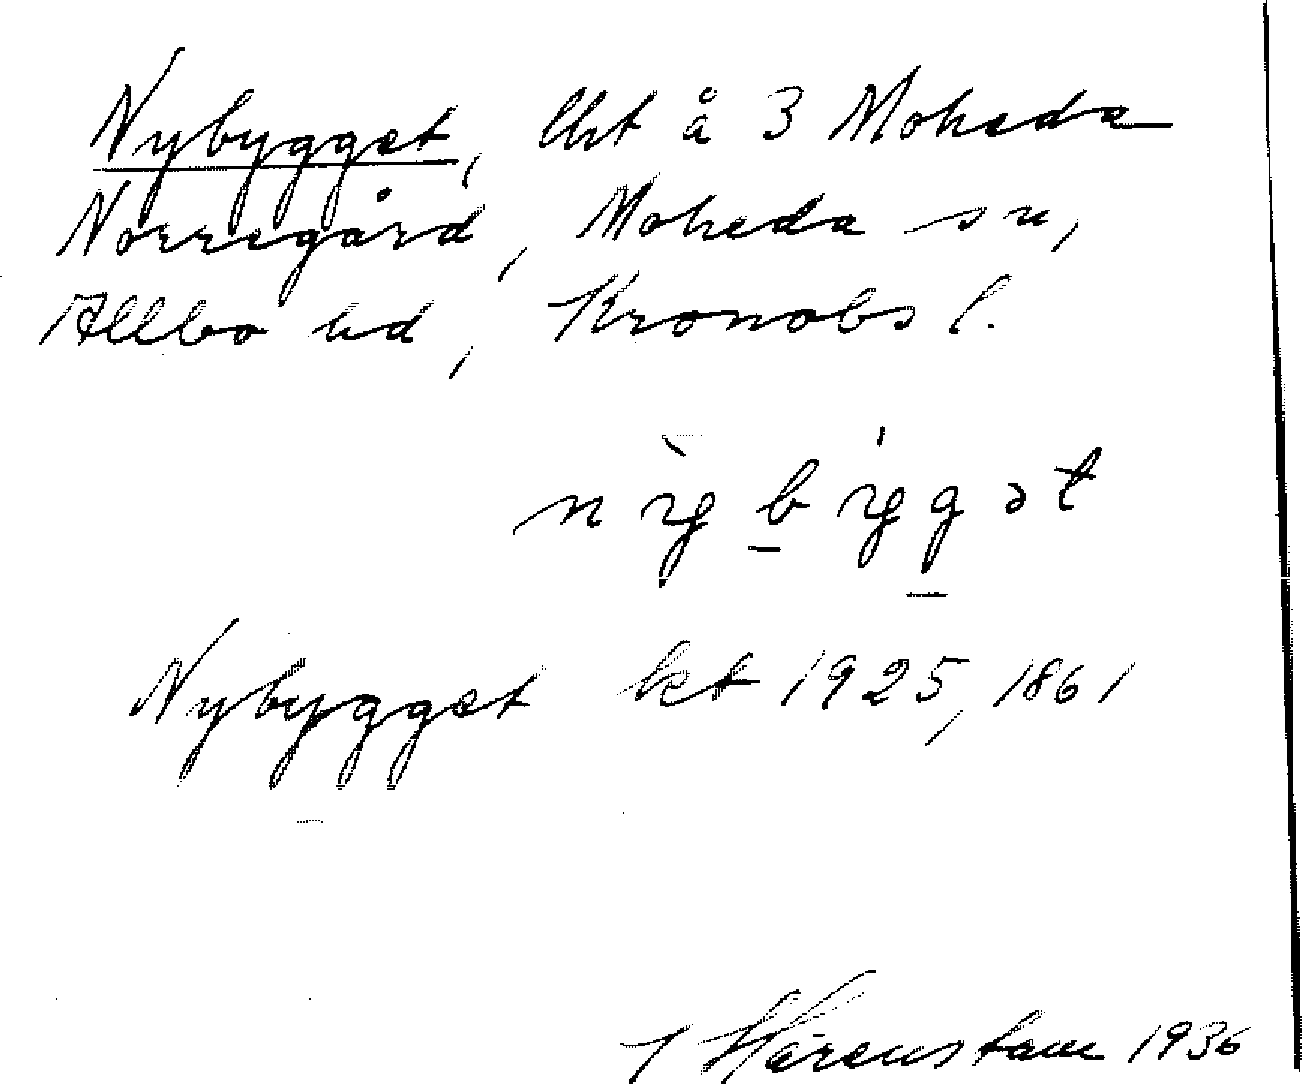 Nybygget, lht å 3 Moheda
Norregård, Moheda sn,
Allbo hd, Kronobs l.
nỳbýgət
Nybygget kt 1925, 1861
J Härenstam 1936